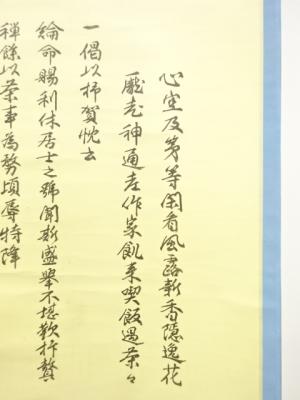 禪餘以茶事為務頃辱特降
綸命賜利休居士之號聞斯盛舉不堪歡抃贅
一偈以抒賀忱云
龐老神通老作家飢来喫飯遇茶々
心空及第等閑看風露新香隱逸花